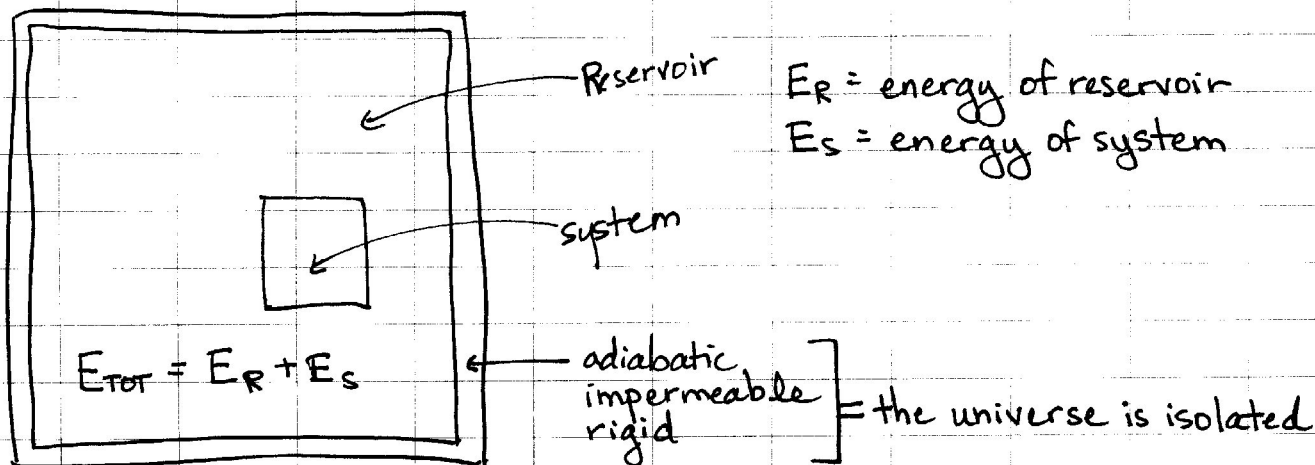 Reservoir
E_R = energy of reservoir
E_S = energy of system
system
E_TOT = E_R + E_S
adiabatic
impermeable
rigid
= the universe is isolated